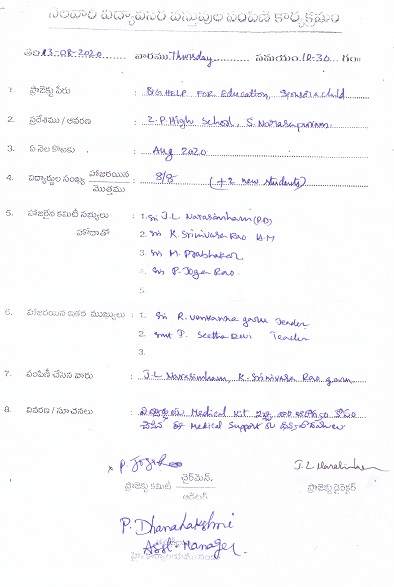 నెలవారి విద్యావసర వస్తువుల పంపిణీ కార్యక్రమం
తేది 13-08-2020 వారము Thursday సమయం 10-30 గం॥
1. ప్రాజెక్టు పేరు : BIG HELP FOR Education, Sponsor a child
2. ప్రదేశము / ఆవరణ : Z.P. High School, S. Narasapuram
3. ఏ నెల కొఱకు : Aug 2020
4. విద్యార్థుల సంఖ్య హాజరయిన / మొత్తము : 8/8 (+2 new students)
5. హాజరైన కమిటీ సభ్యులు : 1. Sri J.L Narasimham (P.D)
హోదాతో 2. Sri K. Srinivasa Rao H.M
3. Sri M. Prabhakar
4. Sri P. Joga Rao
5.
6. హాజరయిన ఇతర ముఖ్యులు : 1. Sri R. Venkanna garu Teacher
2. Smt P. Seetha Devi Teacher
3.
7. పంపిణీ చేసిన వారు : J.L Narasimham, K. Srinivasa Rao garu
8. వివరణ / సూచనలు : Medical Kit
ఈ Medical Support కు ధన్యవాదములు
P. Joga Rao J.L Narasimham
ప్రాజెక్టు కమిటీ చైర్‌మెన్, ప్రాజెక్టు డైరెక్టర్
P. Dhanalakshmi
Asst. Manager